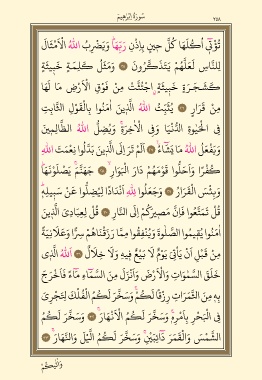 سُورَةُ اِبْرٰهِيمَ ٢٥٨
تُؤْتٖٓي اُكُلَهَا كُلَّ حٖينٍ بِاِذْنِ رَبِّهَاؕ وَيَضْرِبُ اللّٰهُ الْاَمْثَالَ
لِلنَّاسِ لَعَلَّهُمْ يَتَذَكَّرُونَ ۝ وَمَثَلُ كَلِمَةٍ خَبٖيثَةٍ
كَشَجَرَةٍ خَبٖيثَةٍۨ اجْتُثَّتْ مِنْ فَوْقِ الْاَرْضِ مَا لَهَا
مِنْ قَرَارٍ ۝ يُثَبِّتُ اللّٰهُ الَّذٖينَ اٰمَنُوا بِالْقَوْلِ الثَّابِتِ
فِي الْحَيٰوةِ الدُّنْيَا وَفِي الْاٰخِرَةِۚ وَيُضِلُّ اللّٰهُ الظَّالِمٖينَ
وَيَفْعَلُ اللّٰهُ مَا يَشَٓاءُ ۝ اَلَمْ تَرَ اِلَى الَّذٖينَ بَدَّلُوا نِعْمَتَ اللّٰهِ
كُفْرًا وَاَحَلُّوا قَوْمَهُمْ دَارَ الْبَوَارِ ۝ جَهَنَّمَۚ يَصْلَوْنَهَاؕ
وَبِئْسَ الْقَرَارُ ۝ وَجَعَلُوا لِلّٰهِ اَنْدَادًا لِيُضِلُّوا عَنْ سَبٖيلِهٖؕ
قُلْ تَمَتَّعُوا فَاِنَّ مَصٖيرَكُمْ اِلَى النَّارِ ۝ قُلْ لِعِبَادِيَ الَّذٖينَ
اٰمَنُوا يُقٖيمُوا الصَّلٰوةَ وَيُنْفِقُوا مِمَّا رَزَقْنَاهُمْ سِرًّا وَعَلَانِيَةً
مِنْ قَبْلِ اَنْ يَأْتِيَ يَوْمٌ لَا بَيْعٌ فٖيهِ وَلَا خِلَالٌ ۝ اَللّٰهُ الَّذٖي
خَلَقَ السَّمٰوَاتِ وَالْاَرْضَ وَاَنْزَلَ مِنَ السَّمَٓاءِ مَٓاءً فَاَخْرَجَ
بِهٖ مِنَ الثَّمَرَاتِ رِزْقًا لَكُمْۚ وَسَخَّرَ لَكُمُ الْفُلْكَ لِتَجْرِيَ
فِي الْبَحْرِ بِاَمْرِهٖۚ وَسَخَّرَ لَكُمُ الْاَنْهَارَۚ ۝ وَسَخَّرَ لَكُمُ
الشَّمْسَ وَالْقَمَرَ دَٓائِبَيْنِۚ وَسَخَّرَ لَكُمُ الَّيْلَ وَالنَّهَارَۚ ۝
وَاٰتٰيكُمْ